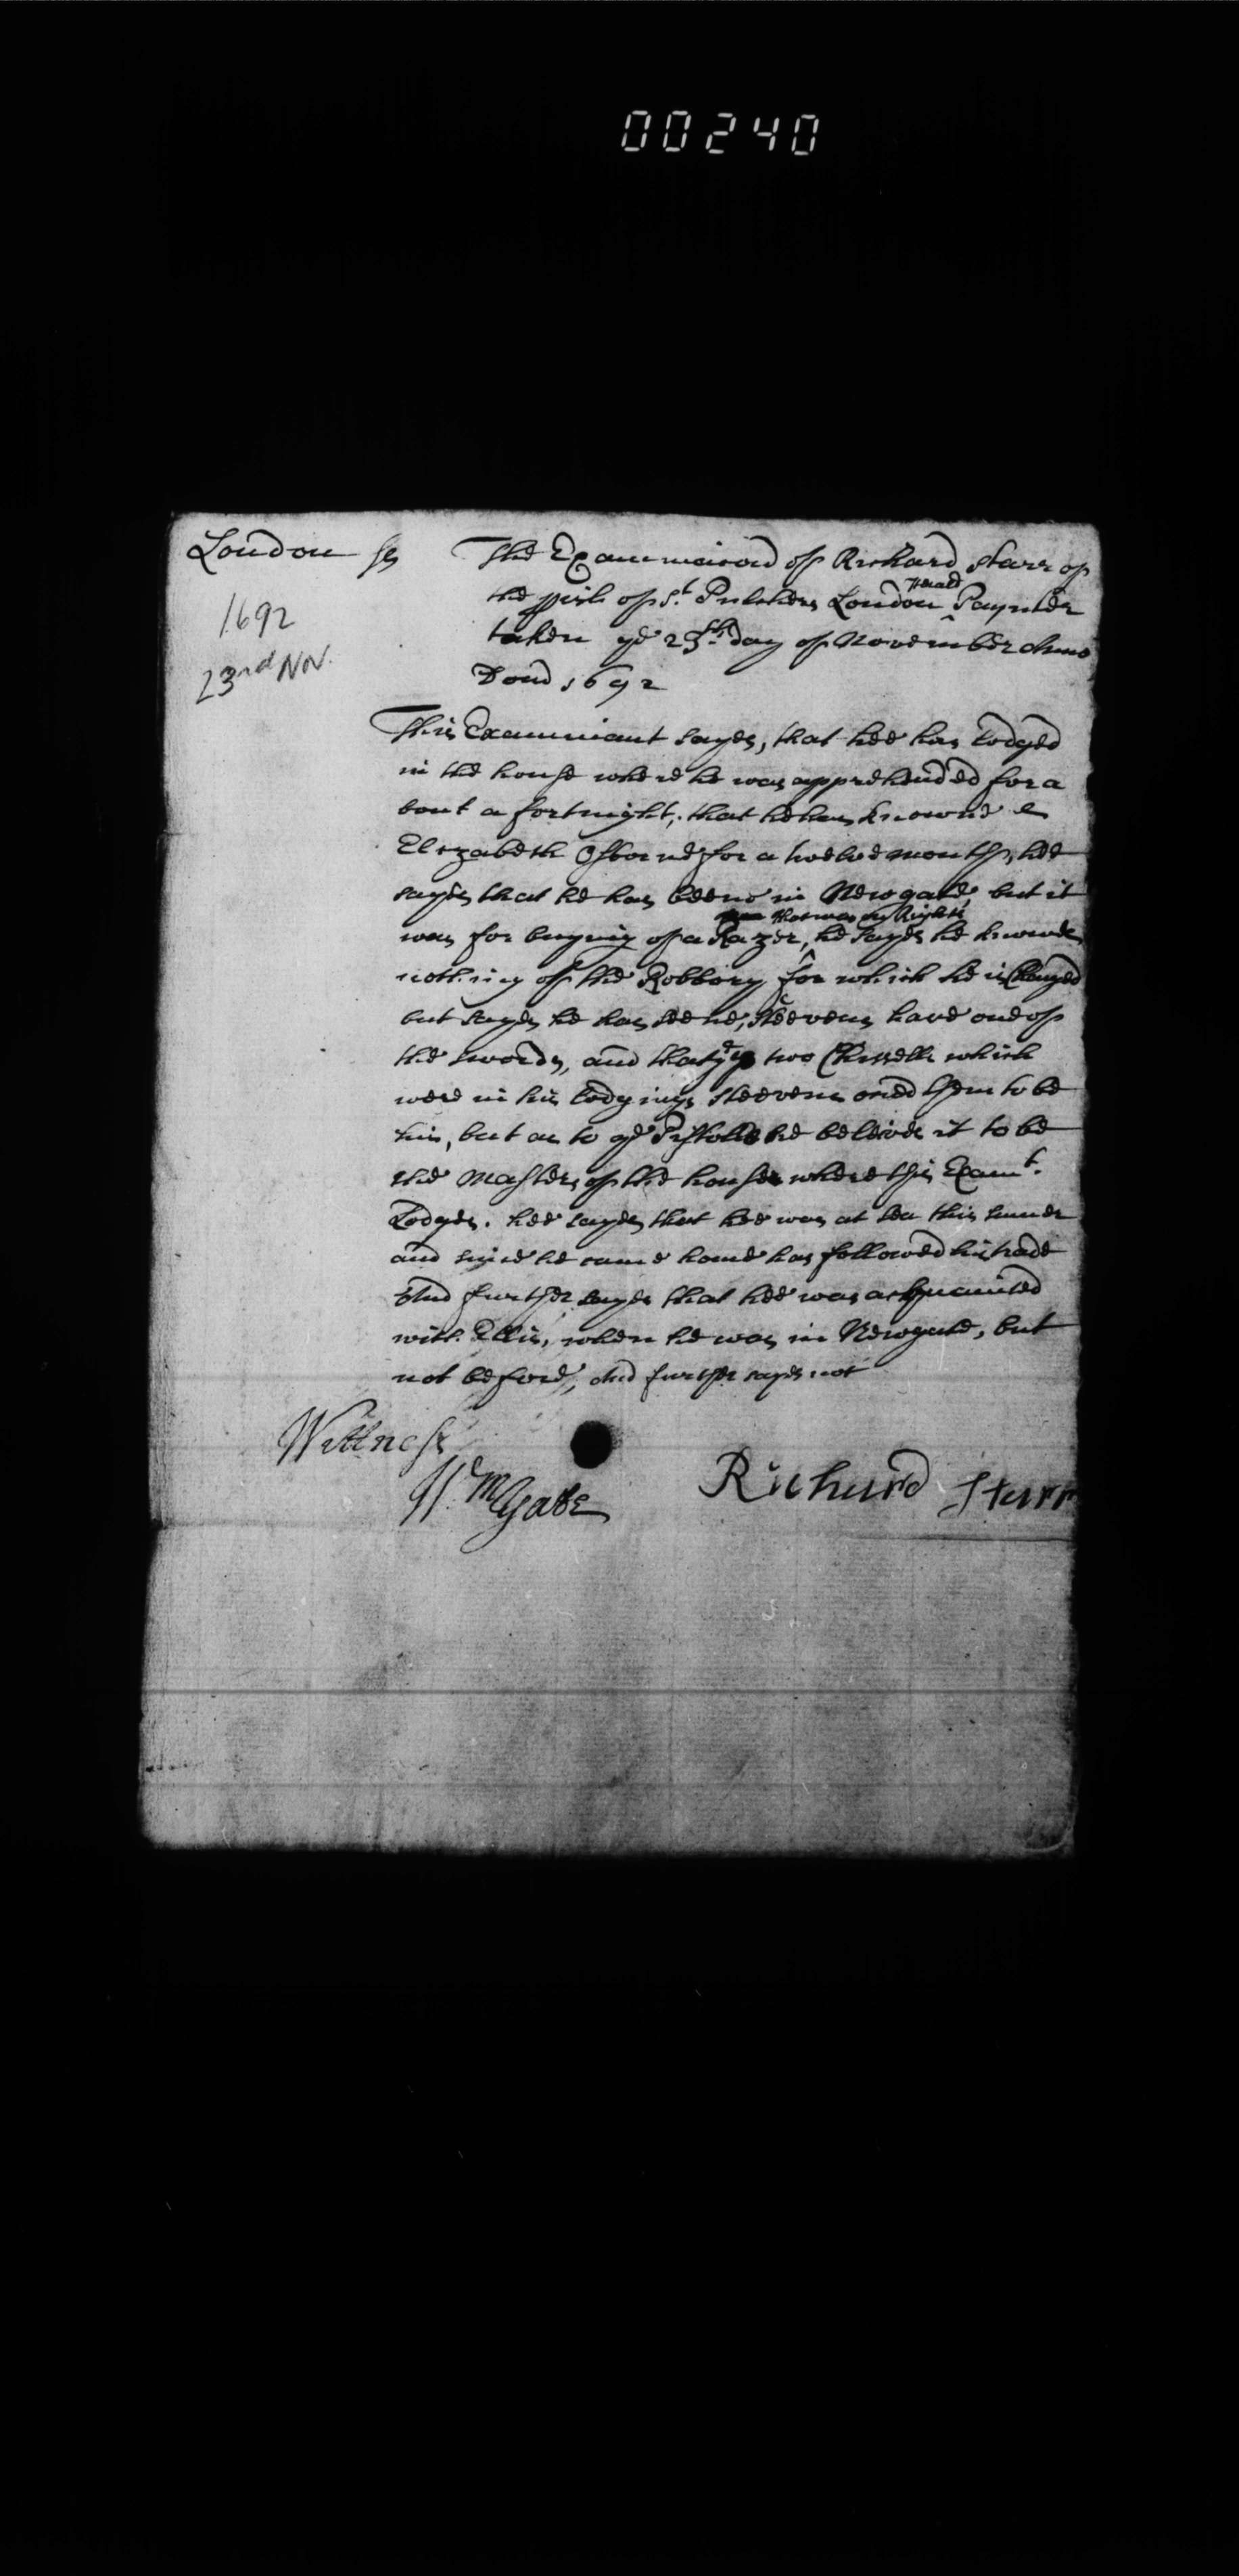 00240
London ss
The Examinacon of Richard Starr of
the pish of St. Pulchers London Herald Paynter
1692
taken ye 23th. day of November Anno
23rd Nov.
Dom 1692
This Examinant sayes, that hee has Lodged
in the house where he was apprehended for a
bout a fortnight, that he has knowne
Elizabeth Osborne for a twelve month, hee
sayes that he has beene in Newgate, but it
that was not Right
was for buying of a Razer, he sayes he knowes
nothing of the Robbery for which he is Charged
but sayes he has seene, Steevens have one of
the swords, and that ye two Chissells which
were in his Lodgings Steevens owed them to be
his, but as to ye Pistolls he beleives it to be
the Masters of the house where this Examt.
Lodges. hee sayes that hee was at sea this sumer
and since he came home has followed his trade
And further sayes that hee was acquainted
with Ellis, when he was in Newgate, but
not before, And further sayes not
Wittness
Wm Gabe
Richard Starr